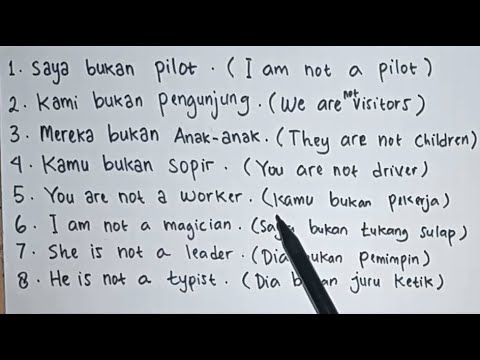 1. Saya bukan pilot. (I am not a pilot)
2. Kami bukan pengunjung. (We are not visitors)
3. Mereka bukan Anak-anak. (They are not children)
4. Kamu bukan sopir. (You are not driver)
5. You are not a worker. (Kamu bukan pekerja)
6. I am not a magician. (Saya bukan tukang sulap)
7. She is not a leader. (Dia bukan pemimpin)
8. He is not a typist. (Dia bukan juru ketik)